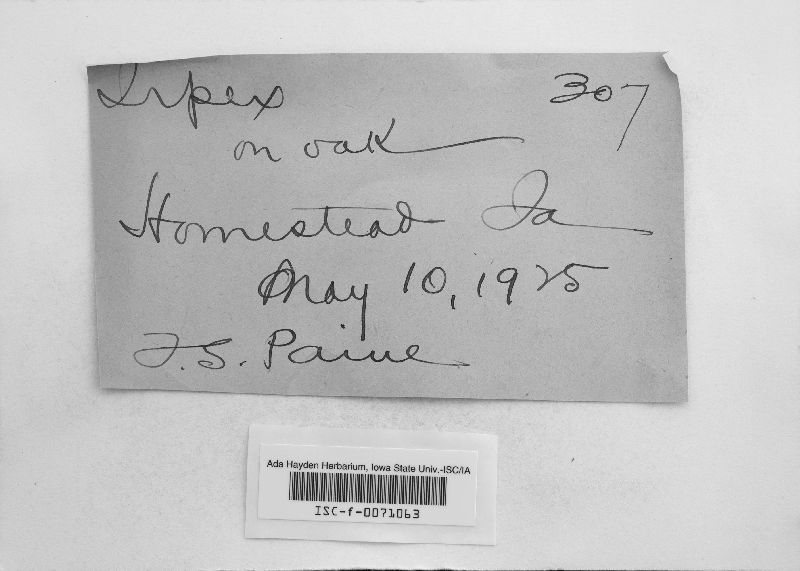 Irpex 307
on oak
Homestead Ia
May 10, 1925
F.S. Paine
Ada Hayden Herbarium, Iowa State Univ.-ISC/IA
ISC-f-0071063